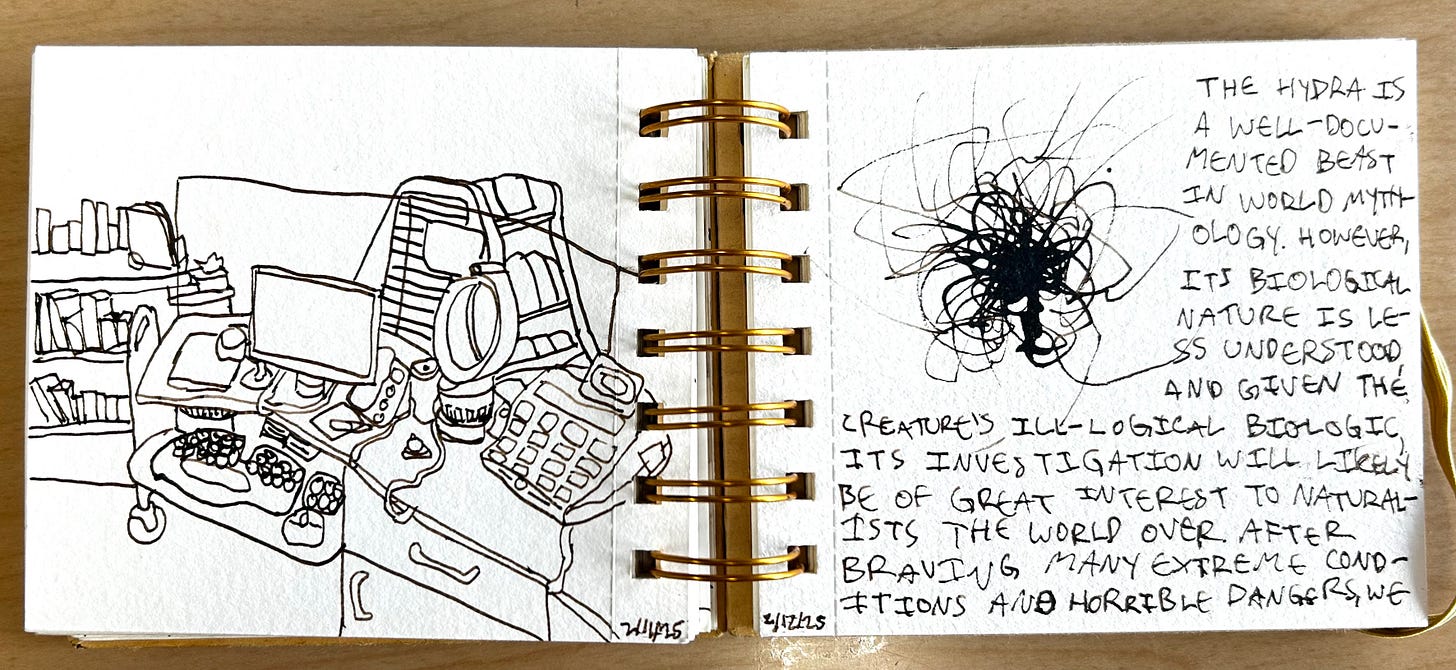 THE HYDRA IS
A WELL-DOCU-
MENTED BEAST
IN WORLD MYTH-
OLOGY. HOWEVER,
ITS BIOLOGICAL
NATURE IS LE-
SS UNDERSTOOD,
AND GIVEN THE
CREATURE'S ILL-LOGICAL BIOLOGIC,
ITS INVESTIGATION WILL LIKELY
BE OF GREAT INTEREST TO NATURAL-
ISTS THE WORLD OVER. AFTER
BRAVING MANY EXTREME COND-
ITIONS AND HORRIBLE DANGERS, WE
2/12/25